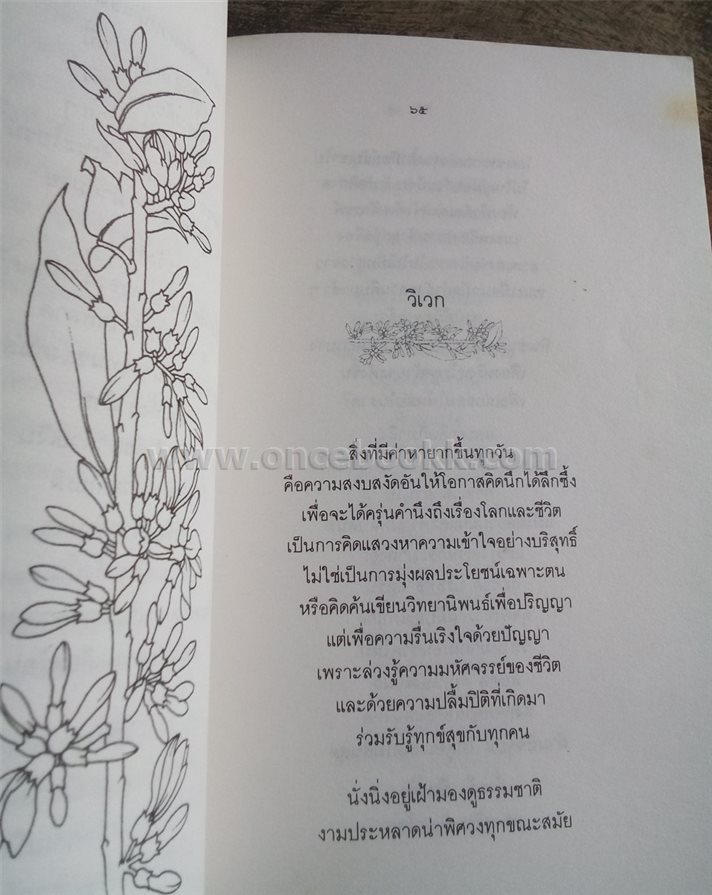 ๖๕
วิเวก
www.oncebookk.com
สิ่งที่มีค่าหายากขึ้นทุกวัน
คือความสงบสงัดอันให้โอกาสคิดนึกได้ลึกซึ้ง
เพื่อจะได้ครุ่นคำนึงถึงเรื่องโลกและชีวิต
เป็นการคิดแสวงหาความเข้าใจอย่างบริสุทธิ์
ไม่ใช่เป็นการมุ่งผลประโยชน์เฉพาะตน
หรือคิดค้นเขียนวิทยานิพนธ์เพื่อปริญญา
แต่เพื่อความรื่นเริงใจด้วยปัญญา
เพราะล่วงรู้ความมหัศจรรย์ของชีวิต
และด้วยความปลื้มปิติที่เกิดมา
ร่วมรับรู้ทุกข์สุขกับทุกคน
นั่งนิ่งอยู่เฝ้ามองดูธรรมชาติ
งามประหลาดน่าพิศวงทุกขณะสมัย